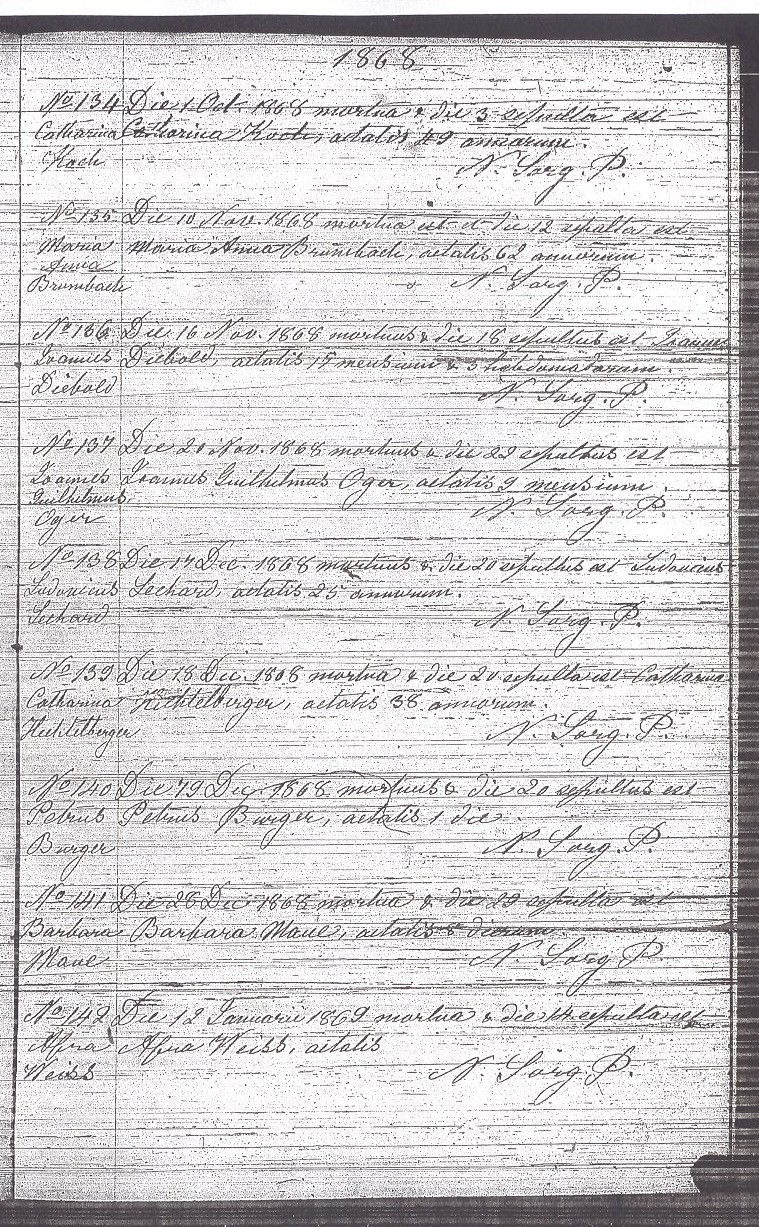 1868
No 134 Die 1 Oct. 1868 mortua & die 3 sepulta est
Catharina Catharina Koch, aetatis 49 annorum.
Koch N. Sorg. P.
No 135 Die 10 Nov. 1868 mortua est et die 12 sepulta est
Maria Maria Anna Brumbach, aetatis 62 annorum.
Anna
Brumbach N. Sorg. P.
No 136 Die 16 Nov. 1868 mortuus & die 18 sepultus est Joannes
Joannes Diebold, aetatis mensium & 3 hebdomadarum.
Diebold N. Sorg. P.
No 137 Die 20 Nov. 1868 mortuus & die 22 sepultus est
Joannes Joannes Guilhelmus Oger, aetatis 9 mensium.
Guilhelmus N. Sorg. P.
Oger
No 138 Die Dec. 1868 mortuus & die 20 sepultus est Ludovicus
Ludovicus Lechard, aetatis 25 annorum.
Lechard N. Sorg. P.
No 139 Die 18 Dec. 1868 mortua & die 20 sepulta est Catharina
Catharina Hechtelberger, aetatis 38 annorum.
Hechtelberger N. Sorg. P.
No 140 Die 19 Dec. 1868 mortuus & die 20 sepultus est
Petrus Petrus Burger, aetatis 1 die.
Burger N. Sorg. P.
No 141 Die 28 Dec 1868 mortua & die 29 sepulta est
Barbara Barbara Maue, aetatis 8 dierum.
Maue N. Sorg P.
No 142 Die 12 Januarii 1869 mortua & die 14 sepulta est
Afra Afra Weiss, aetatis
Weiss N. Sorg P.